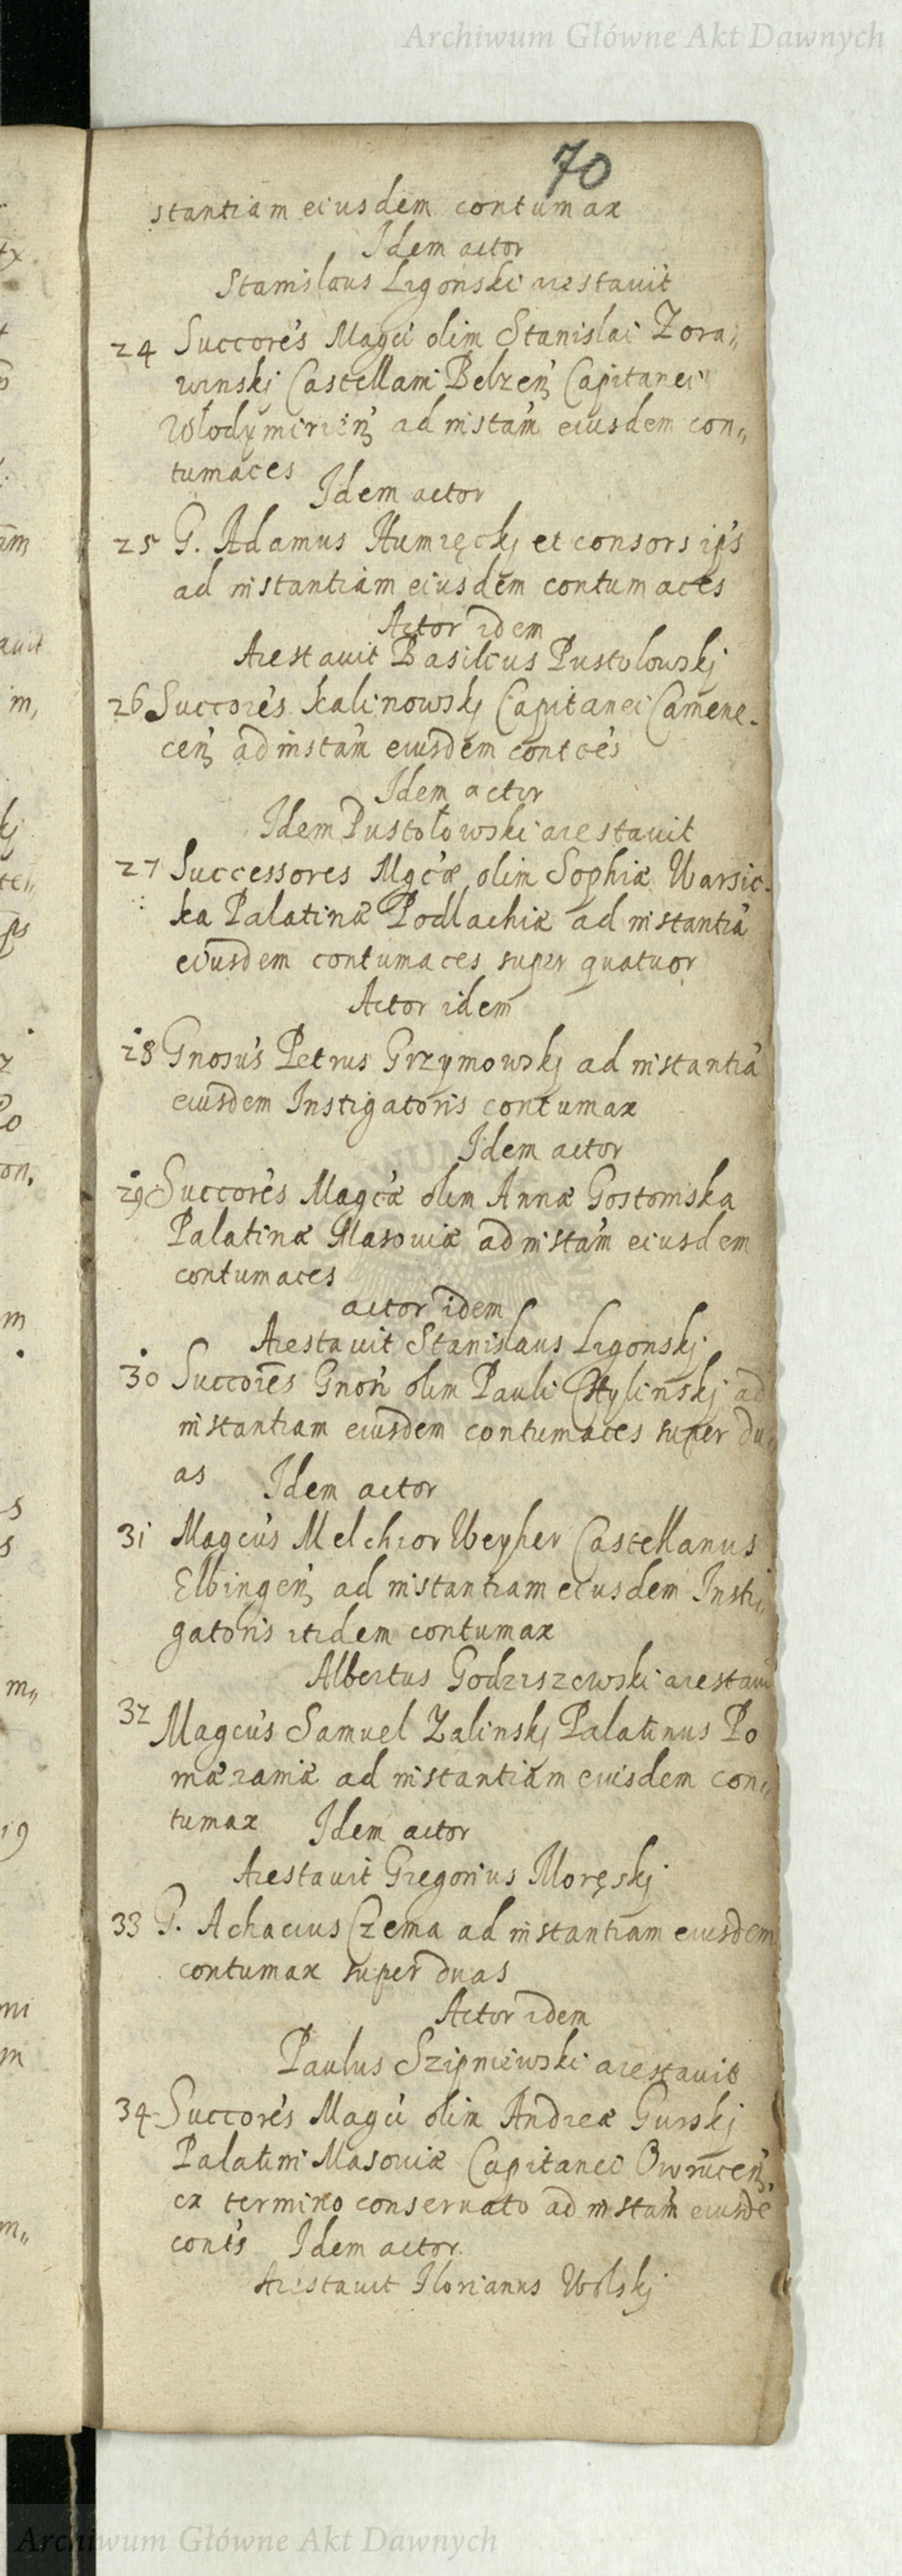 Archiwum Główne Akt Dawnych
70
stantiam eiusdem contumax
Idem actor
Stanislaus Ligonski arestauit
24 Succores Magci olim Stanislai Zora„
winskj Castellani Belzeń Capitanei
Włodymirień ad instam eiusdem con„
tumaces
Idem actor
25 G. Adamus Humięckj et consors ips
ad instantiam eiusdem contumaces
Actor idem
Arestauit Basilius Pustolowskj
26 Succores Kalinowskj Capitanei Camene-
ceń ad instam eiusdem contces
Idem actor
Idem Pustołowski arestauit
27 Successores Mgcæ olim Sophiæ Warsic-
ka Palatinæ Podlachiæ ad instantiā
eiusdem contumaces super quatuor
Actor idem
28 Gnosus Petrus Grzymowskj ad instantiā
eiusdem Instigatoris contumax
Idem actor
29 Succores Magcæ olim Annæ Gostomska
Palatinæ Masouiæ ad instam eiusdem
contumaces
actor idem
Arestauit Stanislaus Ligonskj
30 Succores Gnoń olim Pauli Chylinskj ad
instantiam eiusdem contumaces super du„
as Idem actor
31 Magcus Melchior Weyher Castellanus
Elbingeń ad instantiam eiusdem Insti„
gatoris itidem contumax
Albertus Godziszewski arestauit
32 Magcus Samuel Zalinskj Palatinus Po
mæraniæ ad instantiam euisdem con„
tumax Idem actor
Arestauit Gregorius Moręskj
33 G. Achacius Czema ad instantiam eiusdem
contumax super duas
Actor idem
Paulus Szipniewski arestauit
34 Succores Magci olim Andreæ Gurskj
Palatini Masouiæ Capitanei Owruceń
ex termino conseruato ad instam eiusdē
conts Idem actor
Arestauit Florianus Wolskj
Archiwum Główne Akt Dawnych